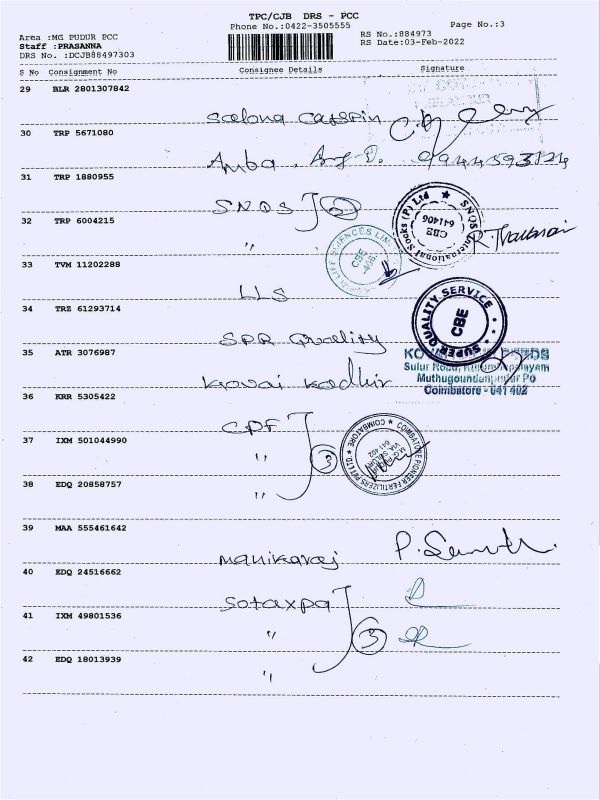 TPC/CJB DRS - PCC
Phone No.:0422-3505555
Page No.:3
Area :MG PUDUR PCC
Staff :PRASANNA
DRS No. :DCJB88497303
RS No.:884973
RS Date:03-Feb-2022
S No Consignment No Consignee Details Signature
29 BLR 2801307842
30 TRP 5671080
Amba . 9944593124
31 TRP 1880955
SNQS 2
32 TRP 6004215
"
SNQS International Socks (P) Ltd
CBE
641406
33 TVM 11202288
LLS
LIFE SCIENCES
CBE
34 TRZ 61293714
SPR Quality
SUPER QUALITY SERVICE
CBE
35 ATR 3076987
Kovai Kadhir
Sulur Road,
Coimbatore - 641 402
36 KRR 5305422
CPF
37 IXM 501044990
" 3
COIMBATORE PIONEER FERTILIZERS PVT LTD
COIMBATORE
641 402
38 EDQ 20858757
"
39 MAA 555461642
Manikaraj
40 EDQ 24516662
Sotaxpa
41 IXM 49801536
" 3
42 EDQ 18013939
"